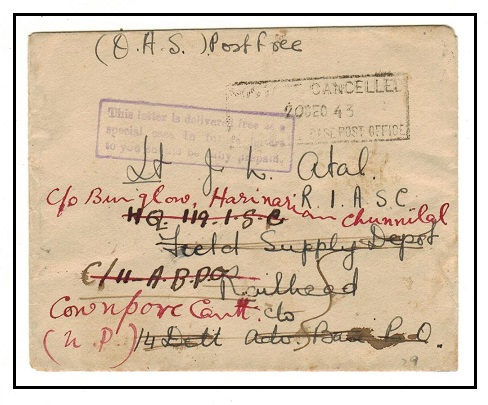 (O.A.S.) Post Free
CANCELLED
20 DEC 43
BASE POST OFFICE
This letter is delivered free as a
special case in future letters
to you be fully prepaid.
Lt J. L. Atal.
R.I.A.S.C
C/o Bunglow, Harinarian Chunnilal
HQ 119. I.S.C
Field Supply Depot
C/o 11 A.B.P.O
Railhead
Cownpore Cantt. c/o
(U.P.) 1/4 Dett Adv. Base P.O.
29